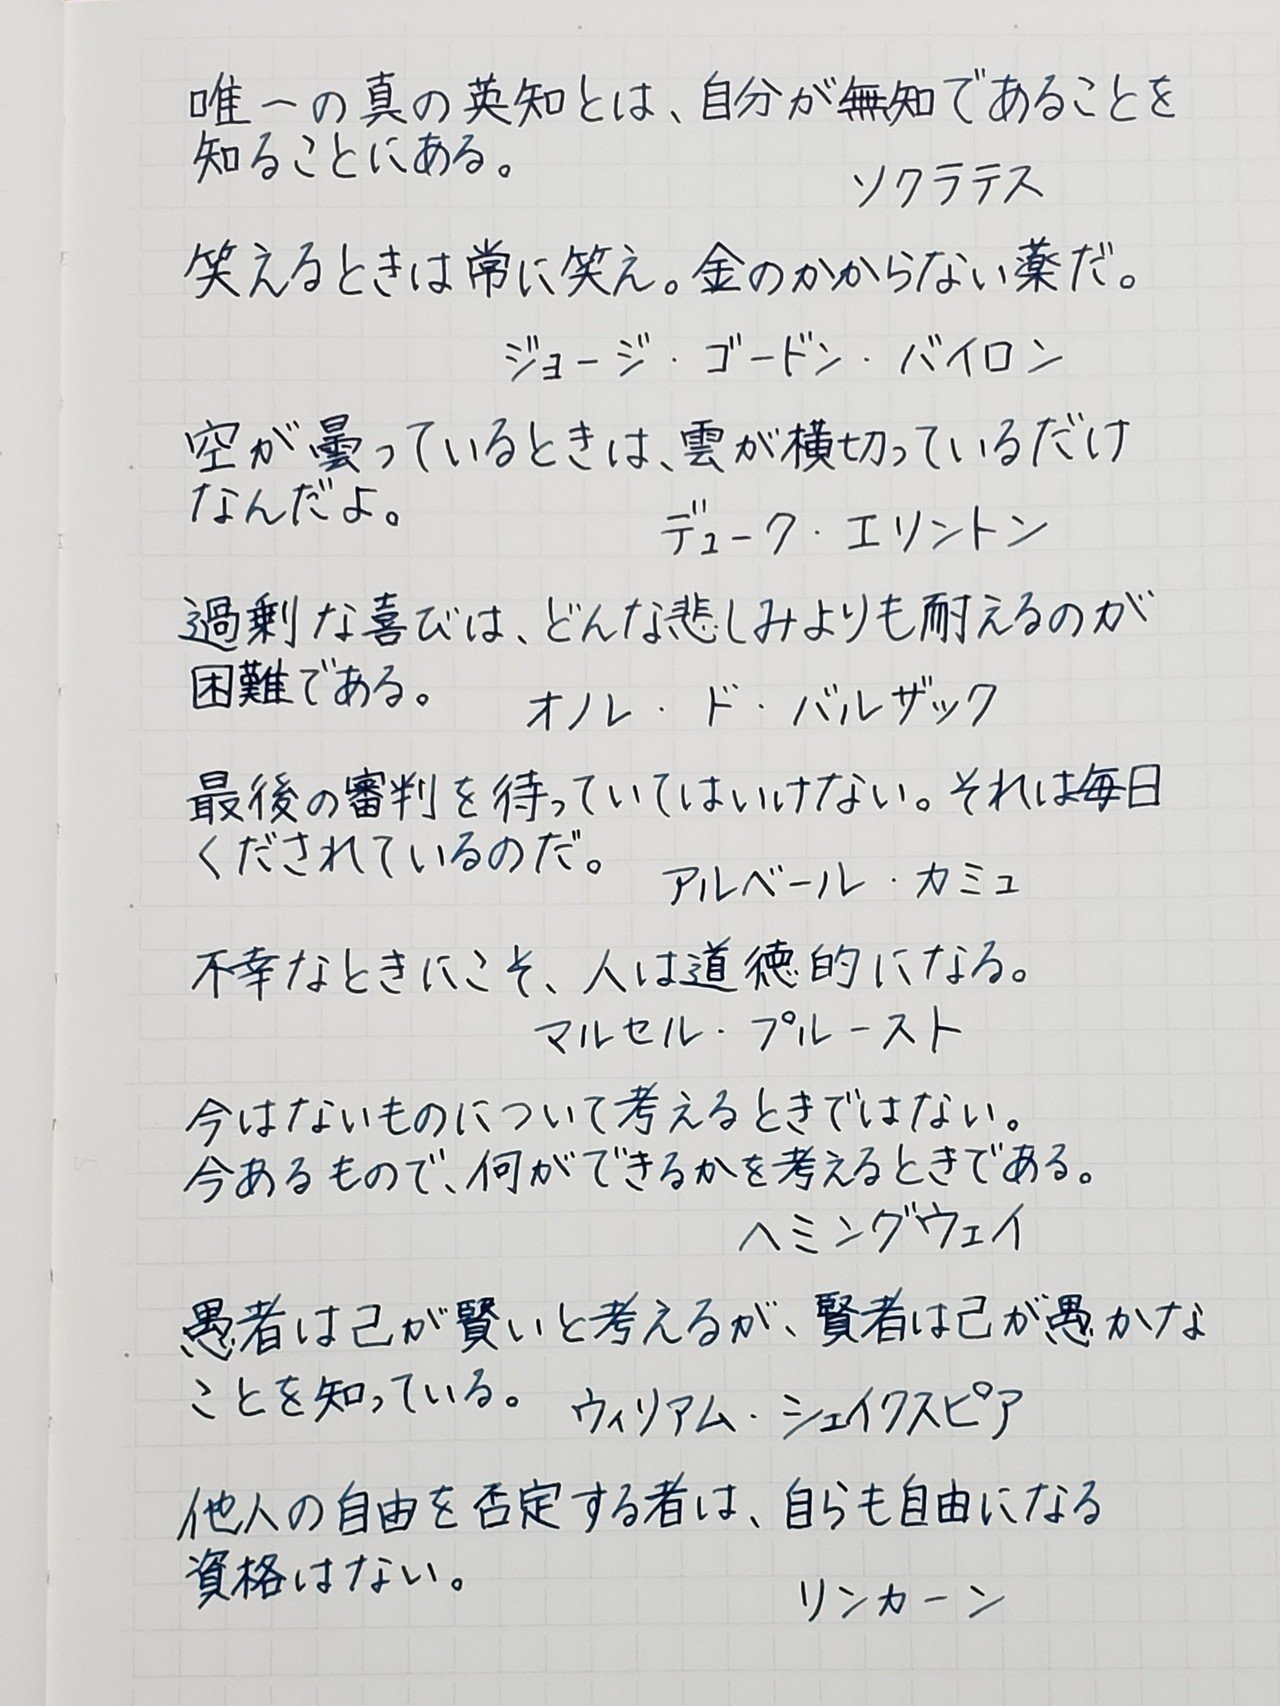 唯一の真の英知とは、自分が無知であることを
知ることにある。
ソクラテス
笑えるときは常に笑え。金のかからない薬だ。
ジョージ・ゴードン・バイロン
空が曇っているときは、雲が横切っているだけ
なんだよ。
デューク・エリントン
過剰な喜びは、どんな悲しみよりも耐えるのが
困難である。
オノレ・ド・バルザック
最後の審判を待っていてはいけない。それは毎日
くだされているのだ。
アルベール・カミュ
不幸なときにこそ、人は道徳的になる。
マルセル・プルースト
今はないものについて考えるときではない。
今あるもので、何ができるかを考えるときである。
ヘミングウェイ
愚者は己が賢いと考えるが、賢者は己が愚かな
ことを知っている。
ウィリアム・シェイクスピア
他人の自由を否定する者は、自らも自由になる
資格はない。
リンカーン